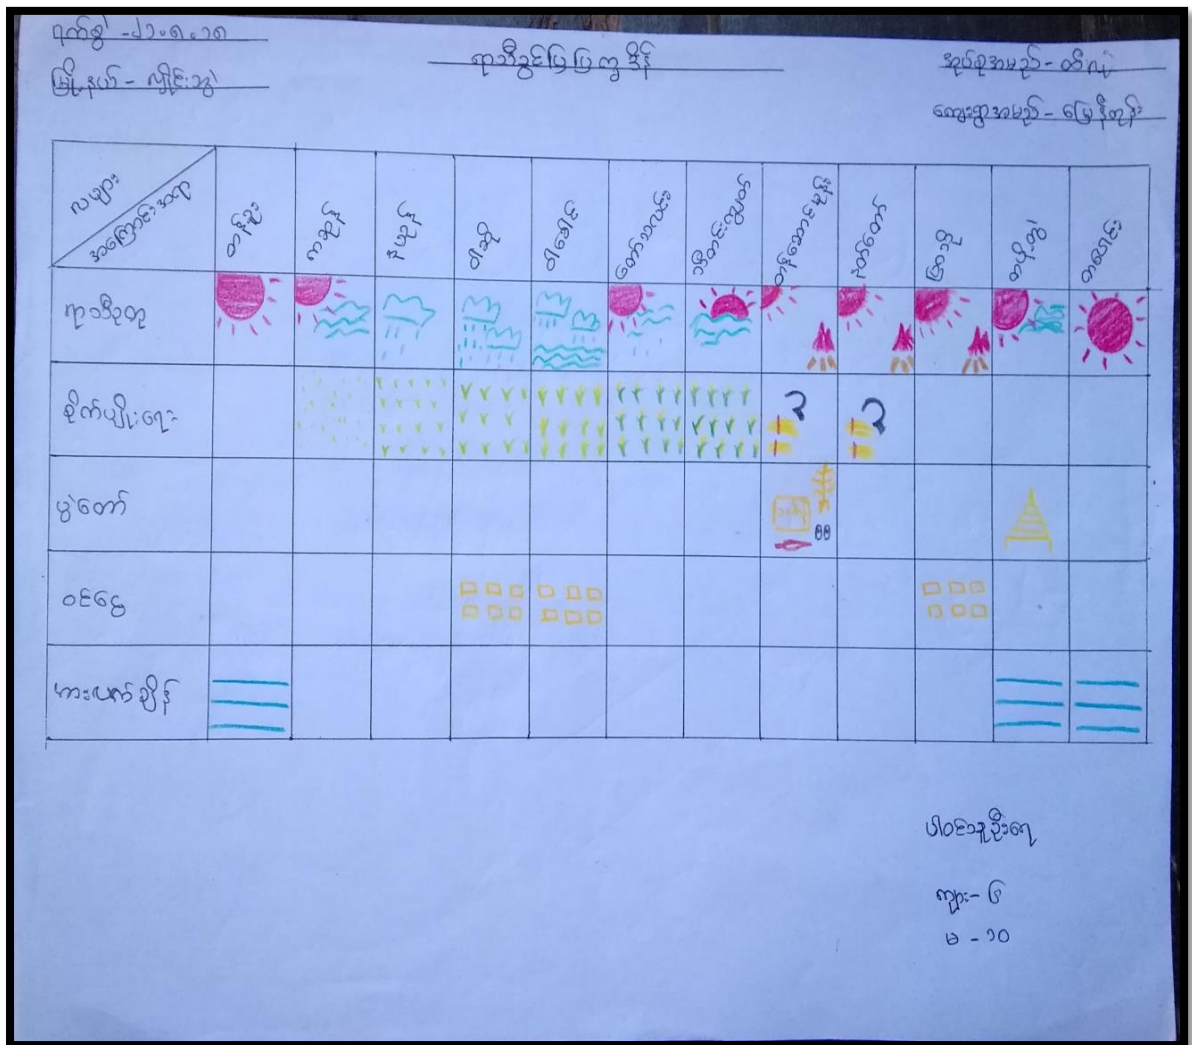 ရာသီခွင်ပြပြက္ခဒိန်
မြို့နယ် - လှိုင်းဘွဲ
အုပ်စုအမည် - တီလုံ
ကျေးရွာအမည် - မြေနီကုန်း
လများ
အကြောင်းအရာ
တန်ခူး
ကဆုန်
နယုန်
ဝါဆို
ဝါခေါင်
တော်သလင်း
သီတင်းကျွတ်
တန်ဆောင်မုန်း
နတ်တော်
ပြာသို
တပို့တွဲ
တပေါင်း
ရာသီဥတု
စိုက်ပျိုးရေး
ပွဲတော်
ဝင်ငွေ
အားလပ်ချိန်
ပါဝင်သူဦးရေ
ကျား - ၆
မ - ၁၀